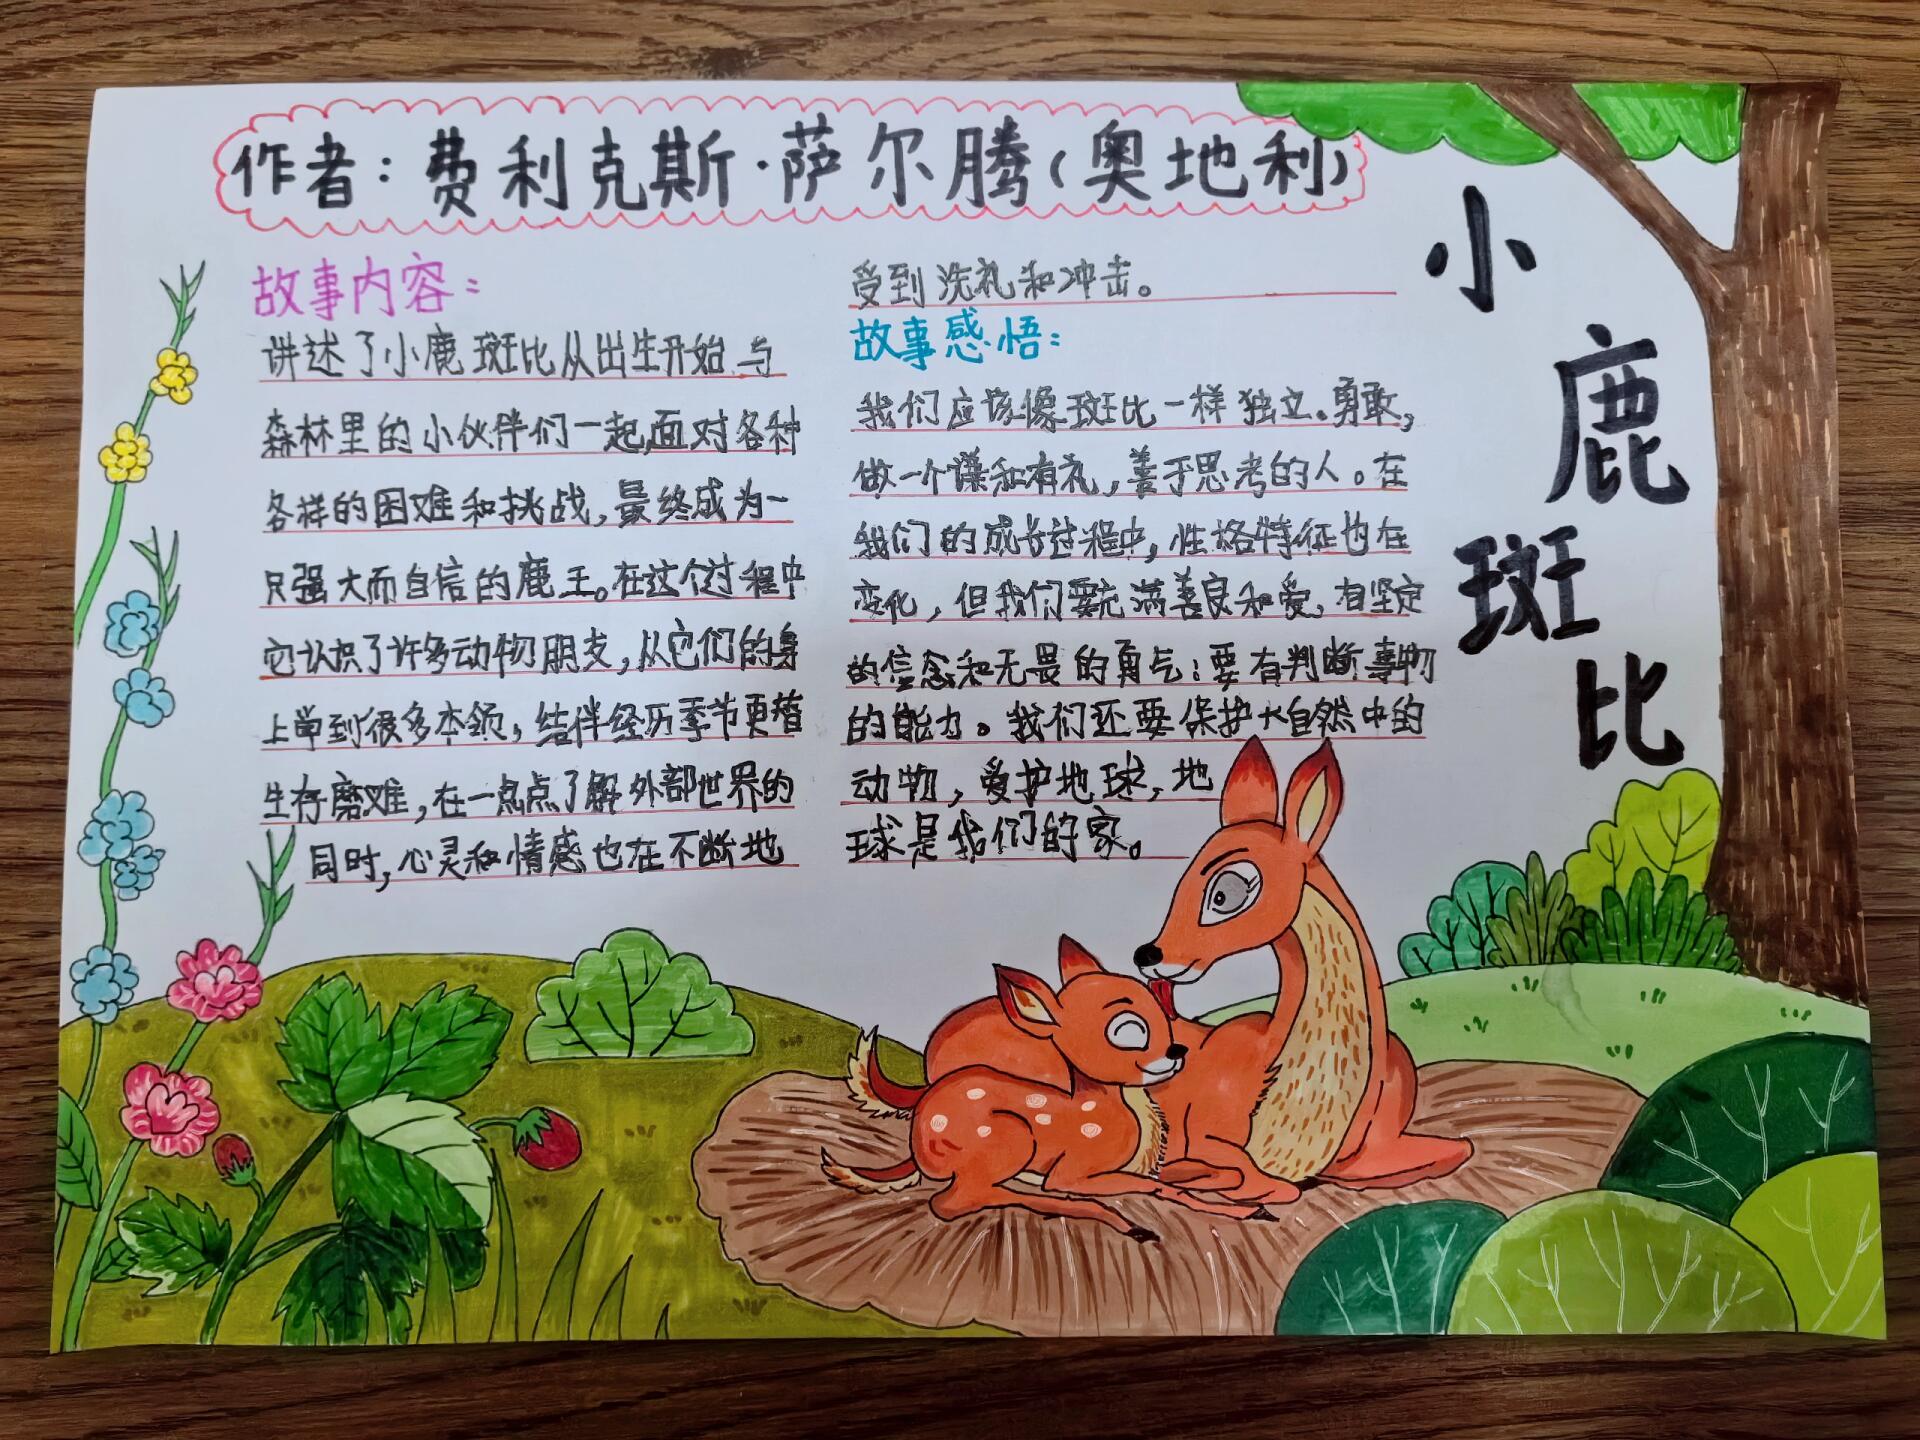 作者：费利克斯·萨尔腾（奥地利）
小鹿斑比
故事内容：
讲述了小鹿斑比从出生开始,与
森林里的小伙伴们一起,面对各种
各样的困难和挑战,最终成为一
只强大而自信的鹿王。在这个过程中
它认识了许多动物朋友,从它们的身
上学到很多本领,结伴经历季节更替
生存磨难,在一点点了解外部世界的
同时,心灵和情感也在不断地
受到洗礼和冲击。
故事感悟：
我们应该像斑比一样独立、勇敢,
做一个谦和有礼,善于思考的人。在
我们的成长过程中,性格特征也在
变化,但我们要充满善良和爱,有坚定
的信念和无畏的勇气;要有判断事物
的能力。我们还要保护大自然中的
动物,爱护地球,地
球是我们的家。